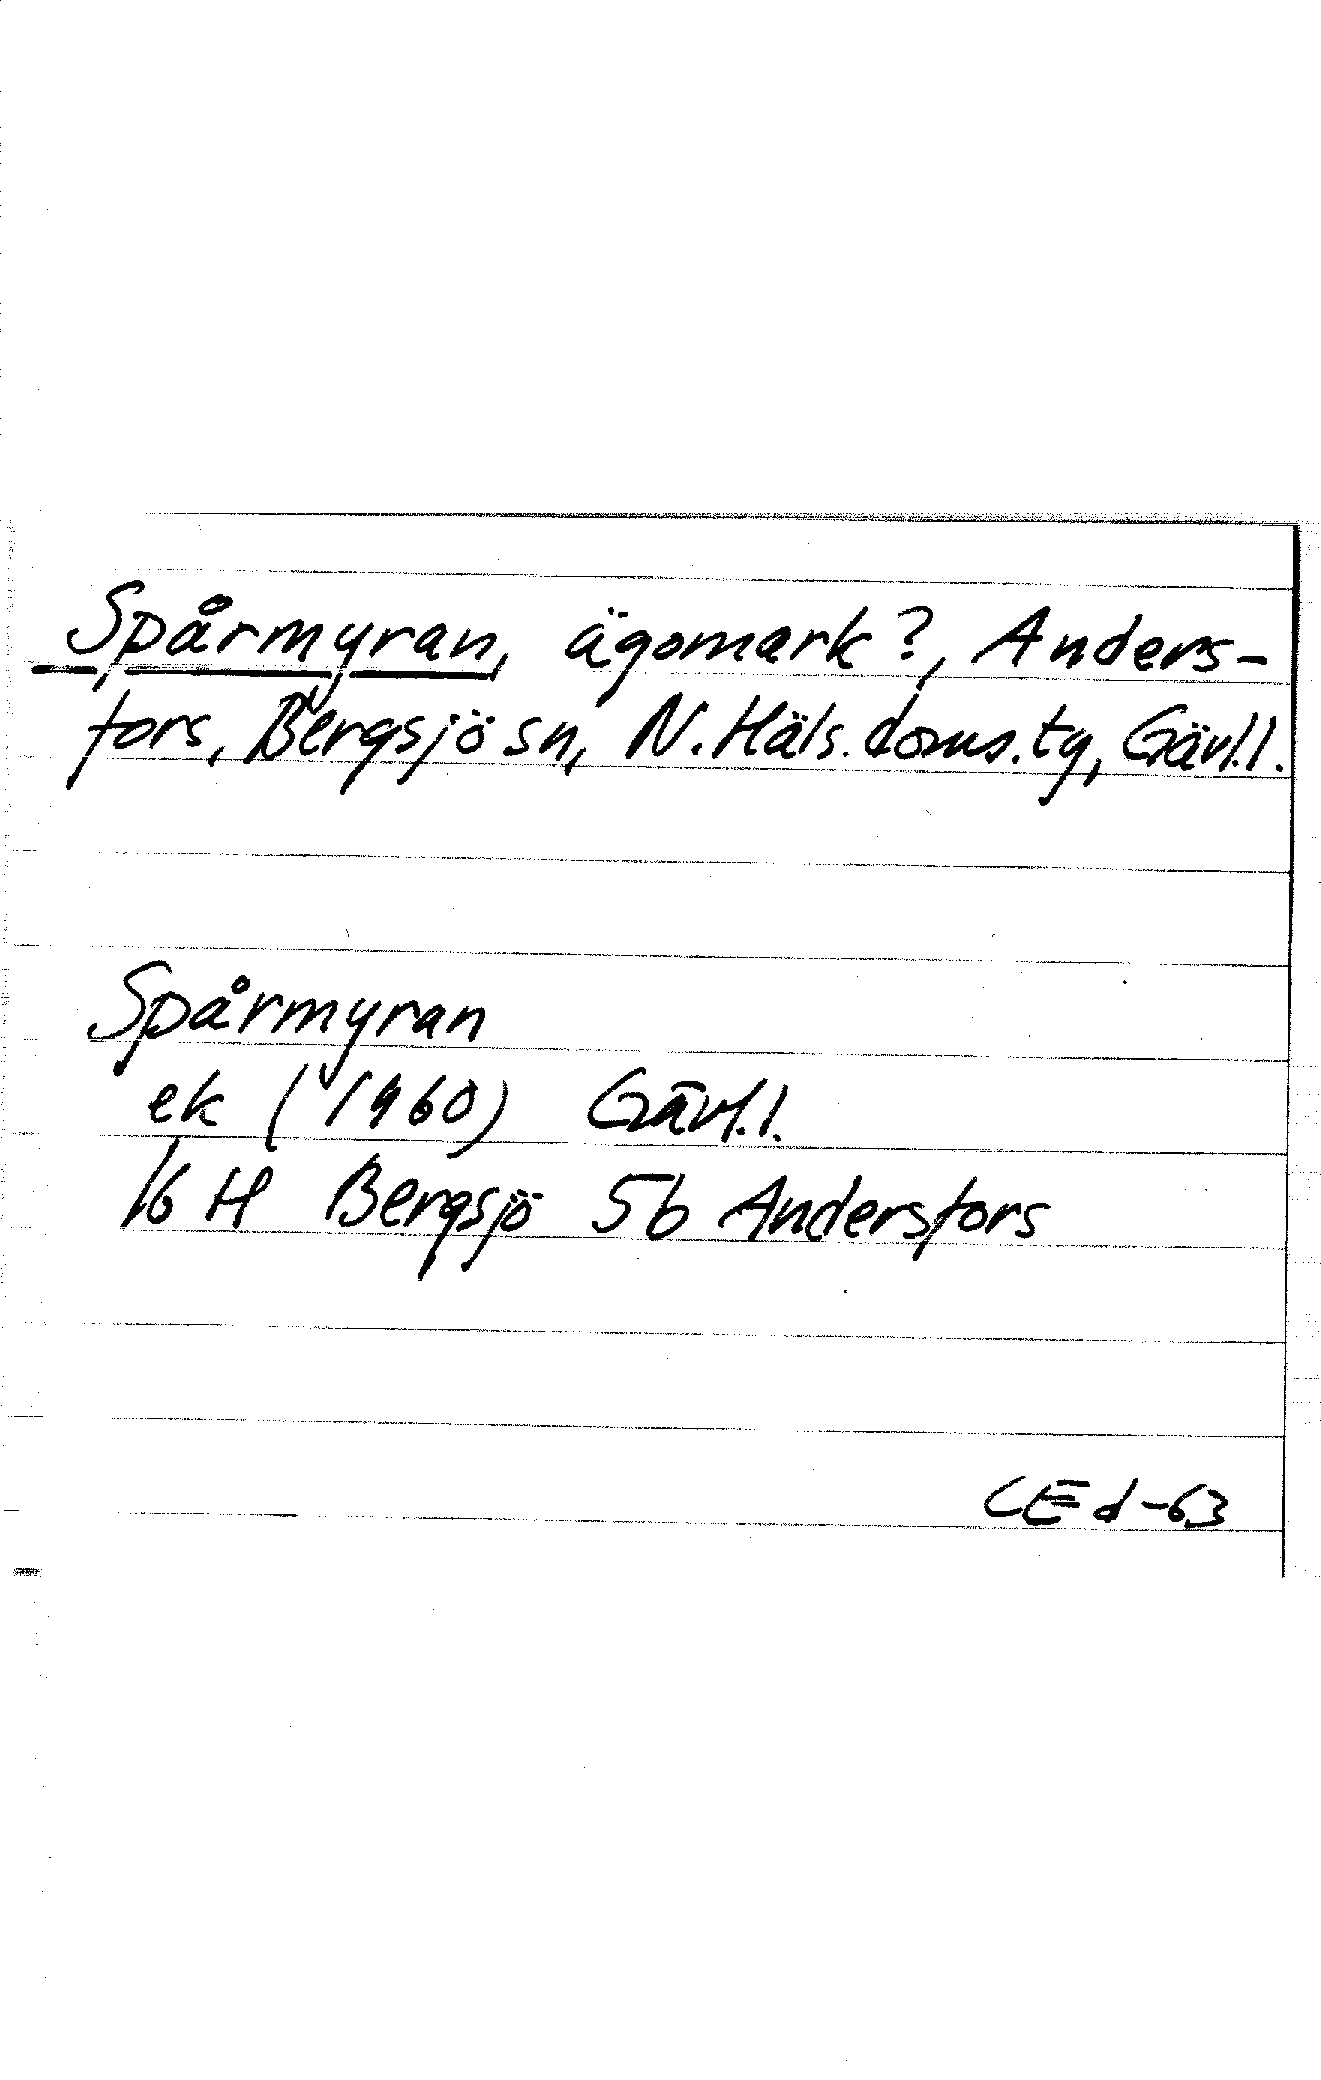 Spårmyran, ägomark?, Anders-
fors, Bergsjö sn, N. Häls. doms. tg, Gävl.l.
Spårmyran
ek (1960) Gävl.l.
16 H Bergsjö 5b Andersfors
CEd-63